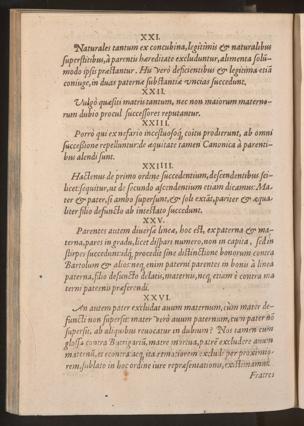 XXI.
Naturales tantum ex concubina, legitimis & naturalibus
superstitibus, à parentis hæreditate excluduntur, alimenta solũ-
modo ipsis præstantur. Hi verò deficientibus & legitima etiã
coniuge, in duas paternæ substantiæ vncias succedunt.
XXII.
Vulgò quæsiti matris tantum, nec non maiorum materno-
rum dubio procul successores reputantur.
XXIII.
Porrò qui ex nefario incestuosoq; coitu prodierunt, ab omni
successione repelluntur: de æquitate tamen Canonica à parenti-
bus alendi sunt.
XXIIII.
Hactenus de primo ordine succedentium, descendentibus sci-
licet: sequitur, ut de secundo ascendentium etiam dicamus: Ma-
ter & pater, si ambo supersunt, & soli extãt, pariter & æqua-
liter filio defuncto ab intestato succedunt.
XXV.
Parentes autem diuersæ lineæ, hoc est, ex paterna & ma-
terna, pares in gradu, licet dispars numero, non in capita, sed in
stirpes succedunt: idq; procedit sine distinctione bonorum contra
Bartolum & alios: neq; enim paterni parentes in bonis à linea
paterna, filio defuncto delatis, maternis, neq; etiam è contra ma
terni paternis præferendi.
XXVI.
An autem pater excludat auum maternum, cùm mater de-
functi non supersit: mater verò auum paternum, cum pater nõ
supersit, ab aliquibus reuocatur in dubium? Nos tamen cum
glossa contra Butrigariũ, matre mortua, patrẽ excludere auum
maternũ, et econtra: acq; ita remotiorem excludi per proximio-
rem, sublato in hoc ordine iure repræsentationis, existimamus.
Fratres